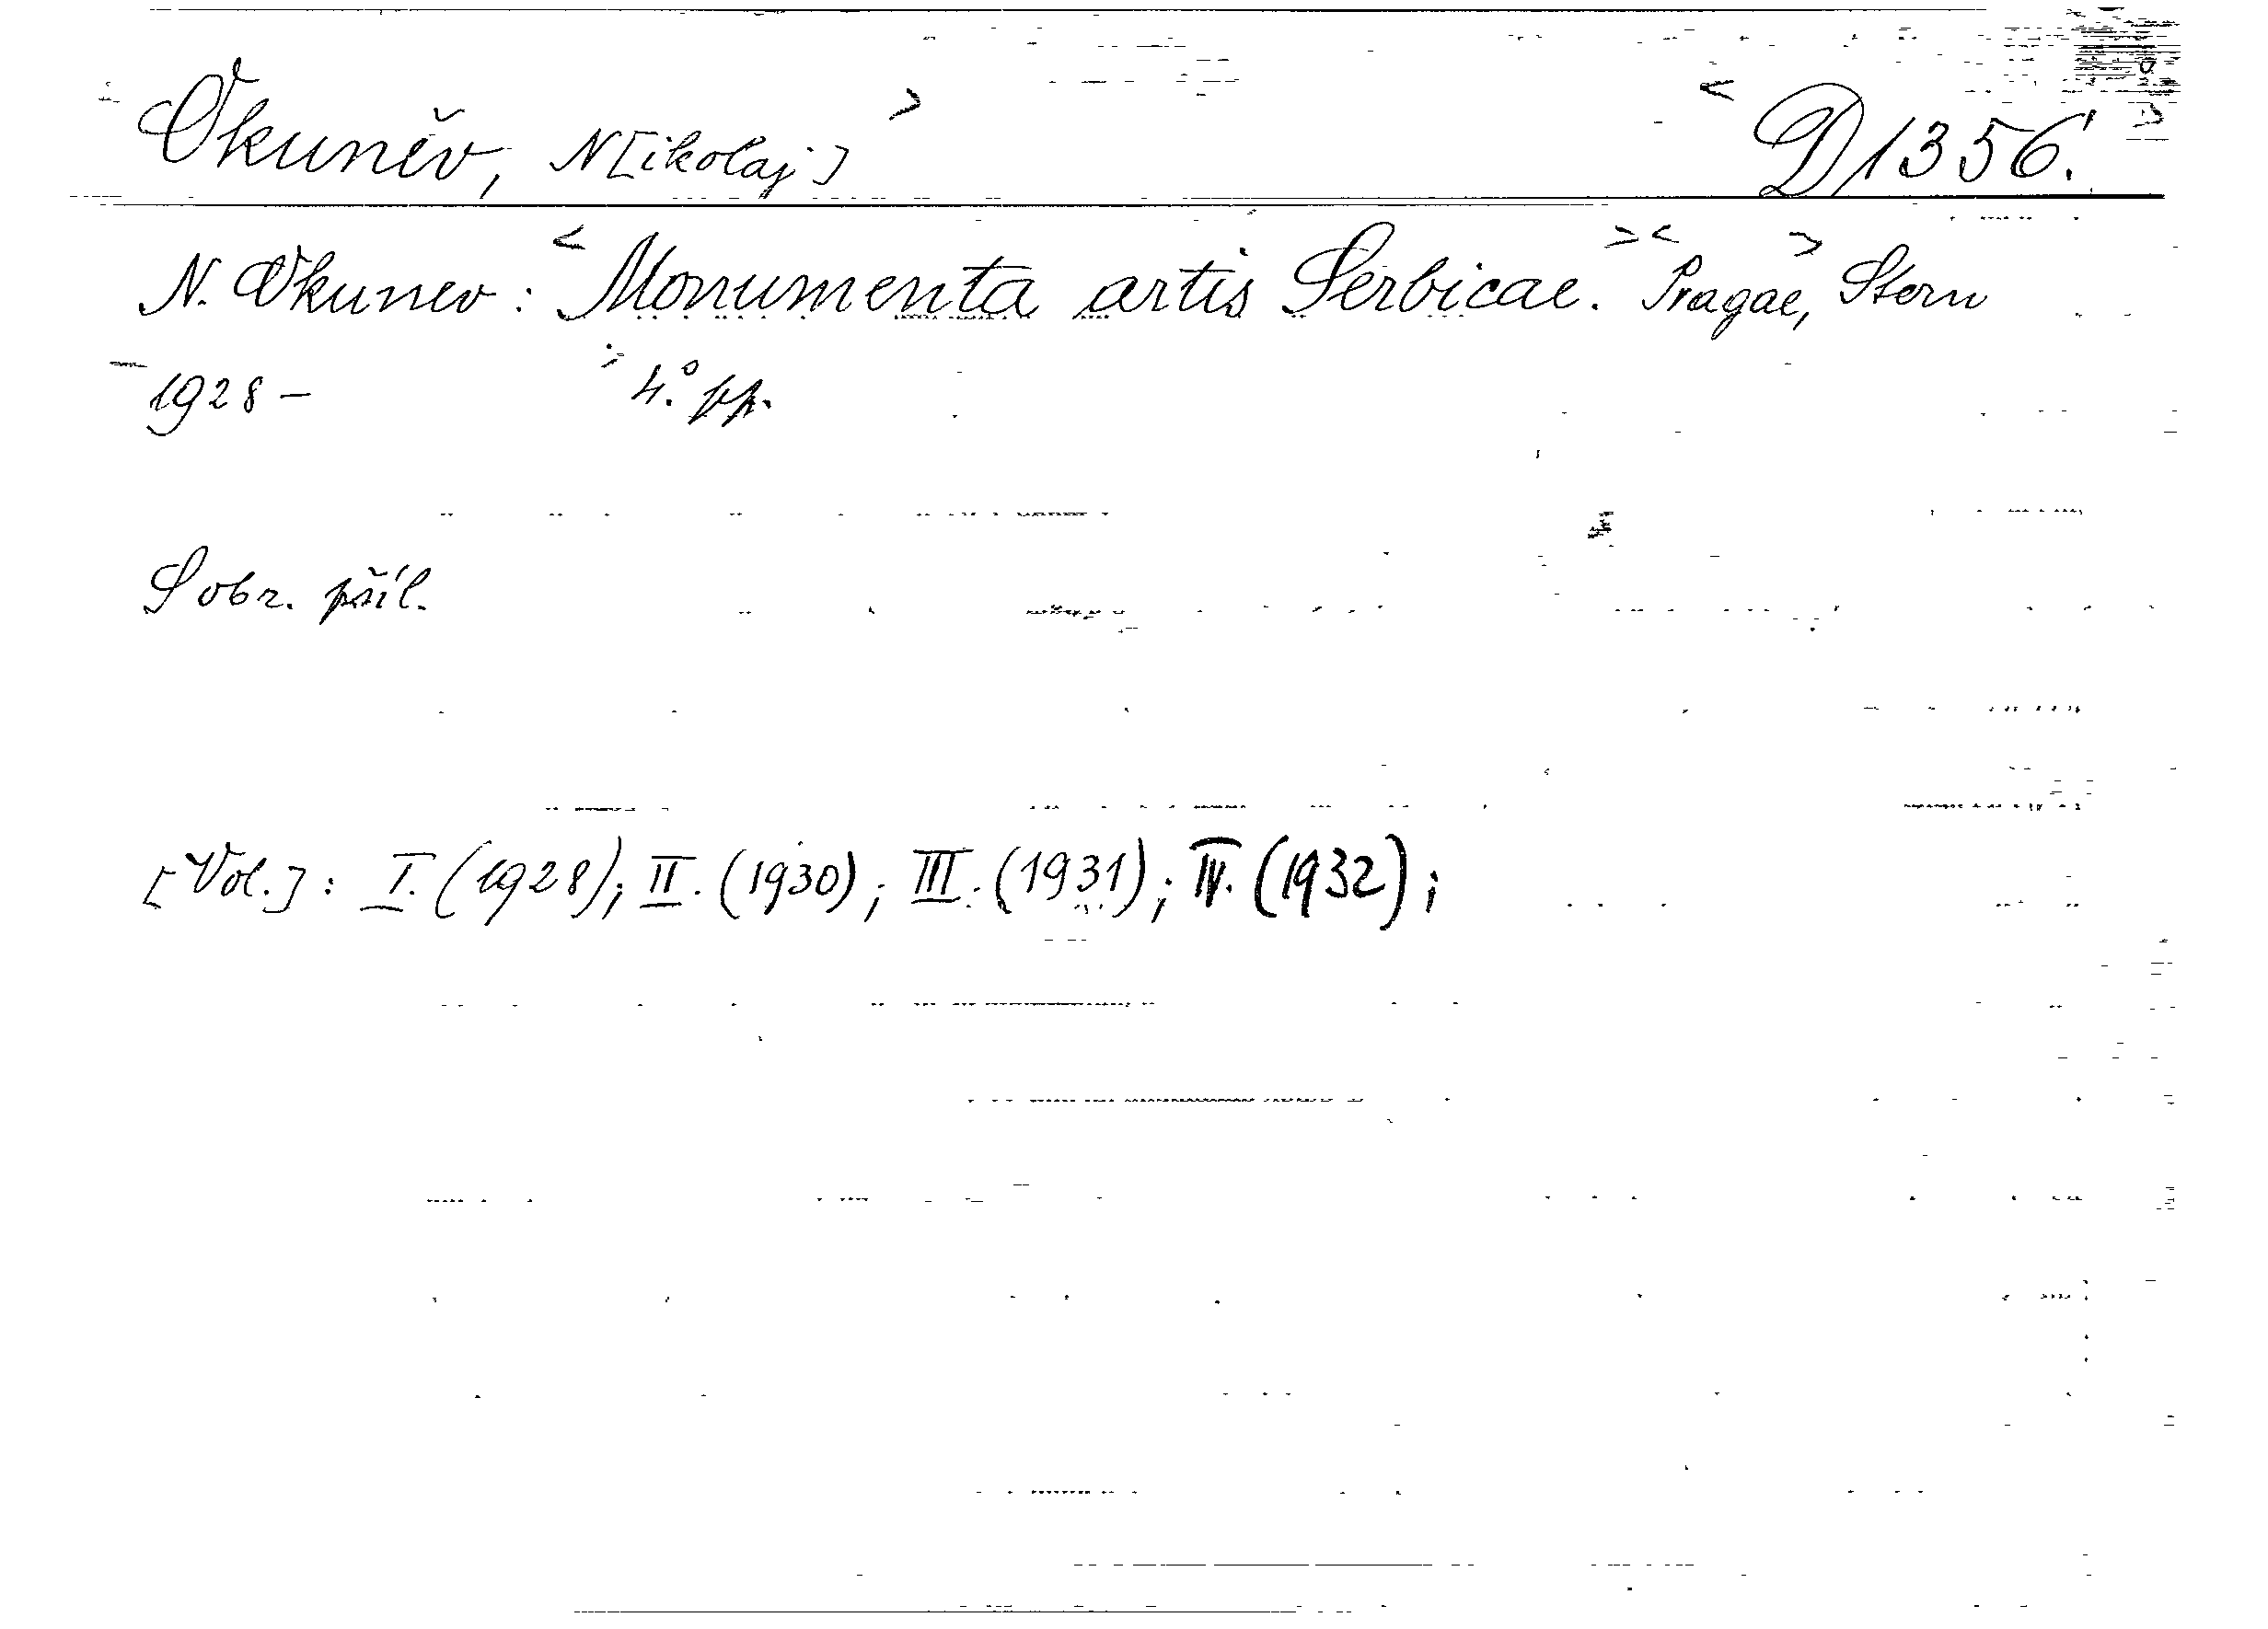 Okuněv, N[ikolaj] > < D 1356. >
N. Okunev: < Monumenta artis Serbicae. > < Pragae, > Stern
1928 – 4.° pp.
S obr. příl.
[Vol.]: I. (1928); II. (1930); III. (1931); IV. (1932);